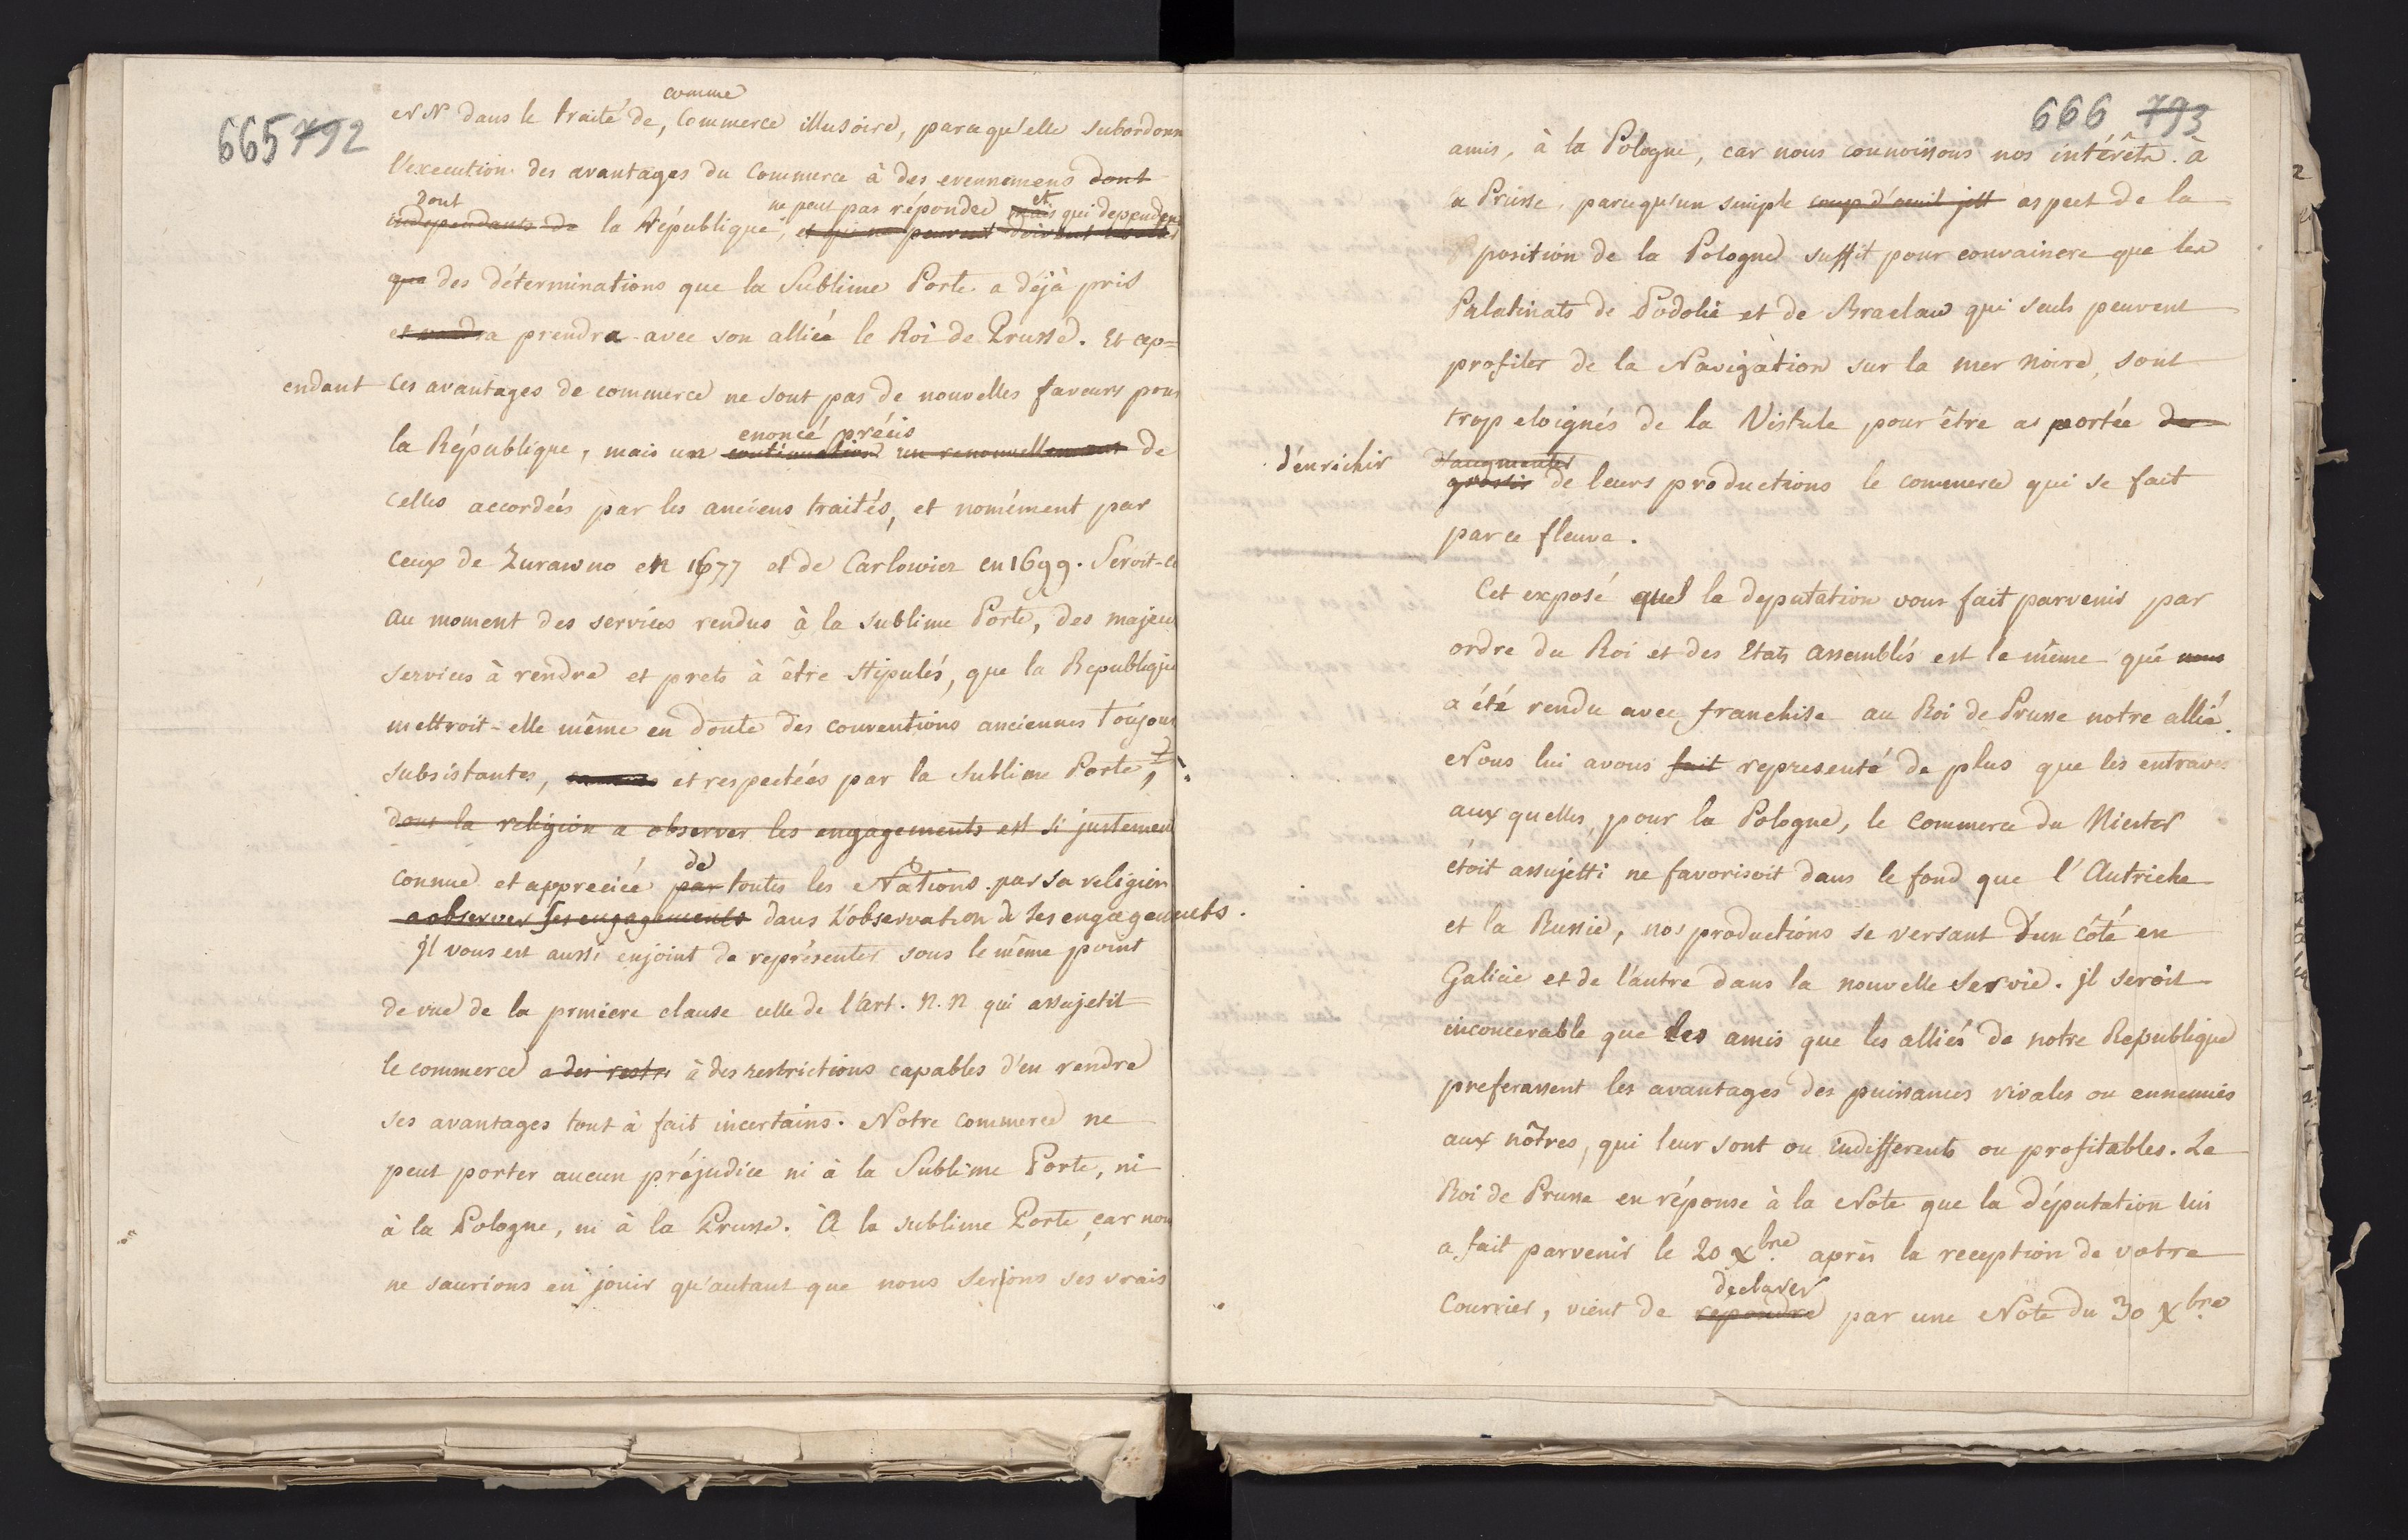 665 792
comme
NN dans le traité de, Commerce illusoire, parcequ'elle subordonn
l'execution des avantages du Commerce à des evennemens dont
dont ne peut pas répondre mais et qui dependent
independants de la République, et qui ne peuvent
que des déterminations que la Sublime Porte a déjà pris
et voudra prendra avec son alliée le Roi de Prusse. Et cep=
endant ces avantages de commerce ne sont pas de nouvelles faveurs pour
enoncé précis
la République, mais un continuation un renouvellement de
celles accordées par les anciens traités, et nomément par
ceux de Zurawno en 1677 et de Carlowicz en 1699. Seroit-ce
au moment des services rendus à la Sublime Porte, des majeu
services à rendre et prets à être stipulés, que la Republique
mettroit-elle même en doute des conventions anciennes toujours
subsistantes, et respectées par la Sublime Porte ?
dont la religion a observer les engagements est si justement
de
connue et appreciée par toutes les Nations. par sa religion
a observer ses engagements dans l'observation de ses engagements.
Jl vous est aussi enjoint de représenter sous le même point
de vue de la prmiere clause celle de l'art. N. N qui assujetit
le commerce a des restr à des restrictions capables d'en rendre
ses avantages tout à fait incertains. Notre commerce ne
peut porter aucun préjudice ni à la Sublime Porte, ni
à la Pologne, ni à la Prusse. À la sublime Porte, car nou
ne saurions en jouir qu'autant que nous serions ses vrais
666 793
amis, à la Pologne, car nous connoissons nos intérêts. à
a Prusse, parcequ'un simple coup d'oeuil jett aspect de la
position de la Pologne suffit pour convaincre que les
Palatinats de Podolie et de Braclaw qui seuls peuvent
profiter de la Navigation sur la mer noire, sont
trop eloignés de la Vistule pour être as portée de
d'enrichir d'augmenter
grossir de leurs productions le commerce qui se fait
par ce fleuve.
Cet exposé que la deputation vous fait parvenir par
ordre du Roi et des Etats assemblés est le même que nous
a été rendu avec franchise au Roi de Prusse notre allié.
Nous lui avons fait representé de plus que les entraves
aux quelles, pour la Pologne, le commerce du Niester
étoit assujetti ne favorisoit dans le fond que l'Autriche
et la Russie, nos productions se versant d'un côté en
Galicie et de l'autre dans la nouvelle Servie. Jl seroit
inconcevable que les amis que les alliés de notre Republique
preferassent les avantages des puissances rivales ou ennemies
aux nôtres, qui leur sont ou indifferents ou profitables. Le
Roi de Prusse en réponse à la Note que la députation lui
a fait parvenir le 20 Xbre après la reception de votre
declarer
Courrier, vient de repondre par une Note du 30 Xbre